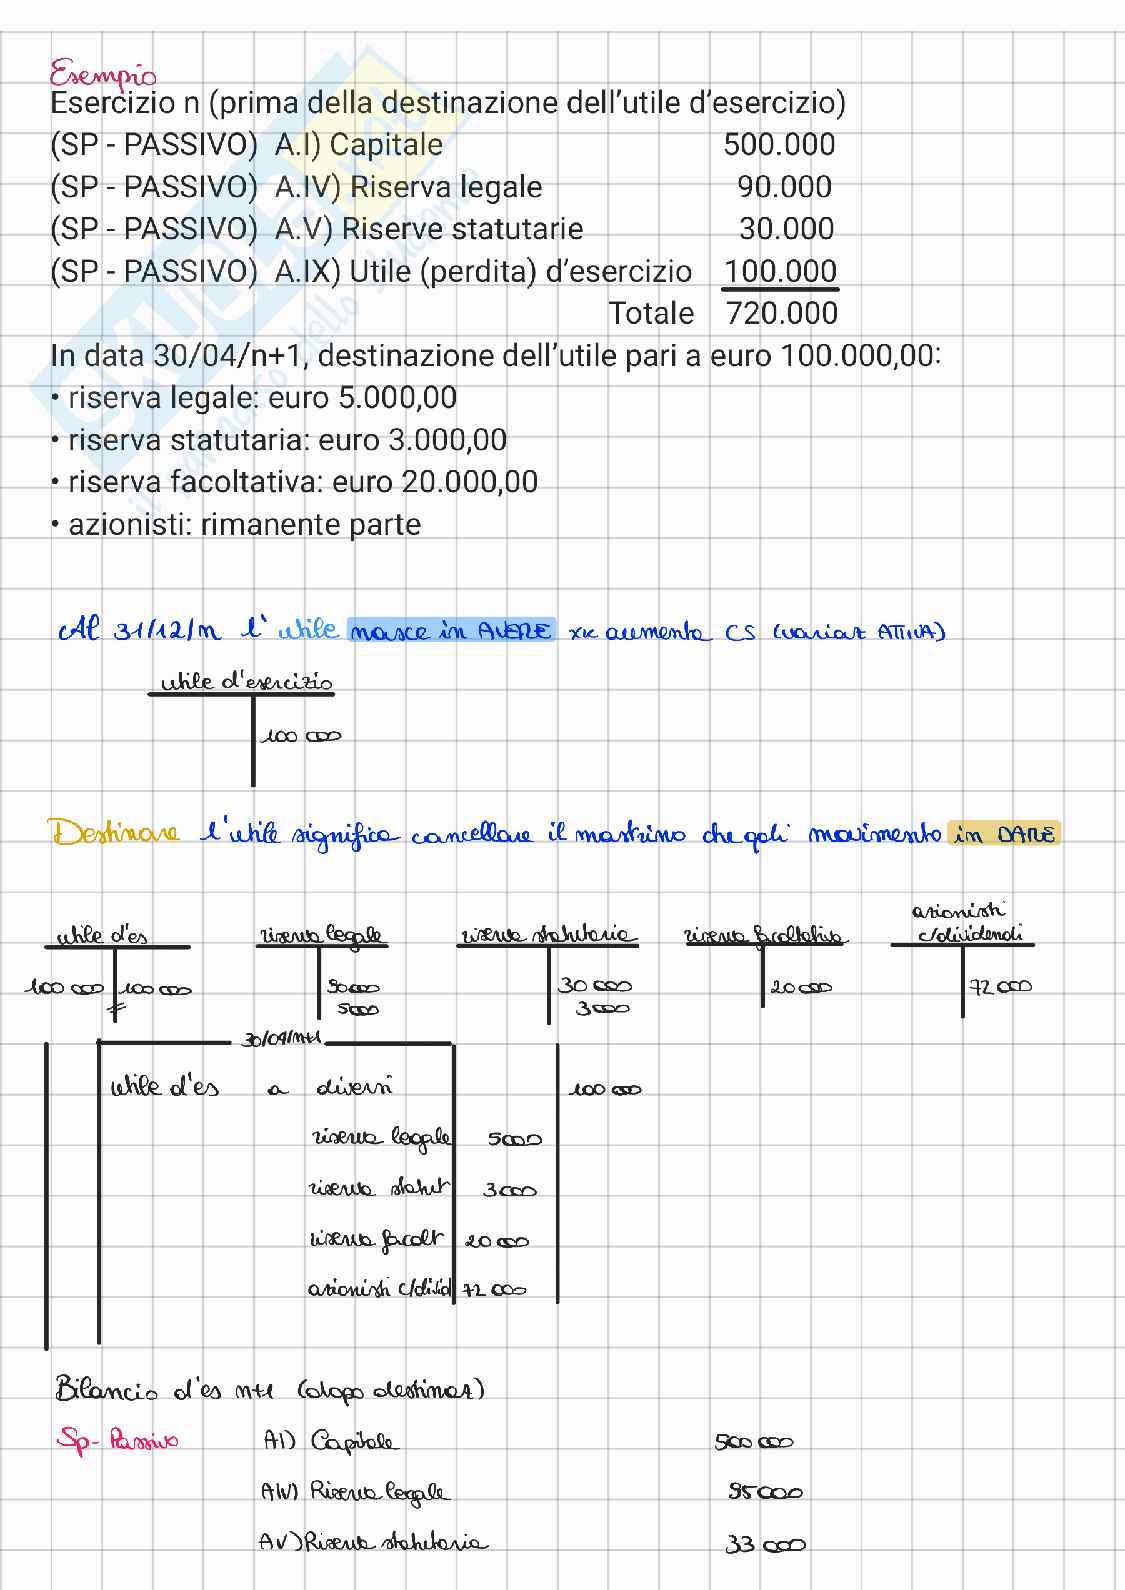 Esempio
Esercizio n (prima della destinazione dell'utile d'esercizio)
(SP - PASSIVO) A.I) Capitale 500.000
(SP - PASSIVO) A.IV) Riserva legale 90.000
(SP - PASSIVO) A.V) Riserve statutarie 30.000
(SP - PASSIVO) A.IX) Utile (perdita) d'esercizio 100.000
Totale 720.000
In data 30/04/n+1, destinazione dell'utile pari a euro 100.000,00:
• riserva legale: euro 5.000,00
• riserva statutaria: euro 3.000,00
• riserva facoltativa: euro 20.000,00
• azionisti: rimanente parte
Al 31/12/n l'utile nasce in AVERE xk aumenta CS (variaz ATTIVA)
utile d'esercizio
100 000
Destinare l'utile significa cancellare il mastrino che gli movimento in DARE
azionisti
utile d'es riserva legale riserva statutaria riserva facoltativa c/dividendi
100 000 100 000 90000 30 000 20 000 72 000
5000 3000
30/04/n+1
utile d'es a diversi 100 000
riserva legale 5000
riserva statut 3000
riserva facolt 20 000
azionisti c/divid 72 000
Bilancio d'es n+1 (dopo destinaz)
Sp- Passivo AI) Capitale 500 000
AIV) Riserva legale 95000
AV) Riserva statutaria 33 000